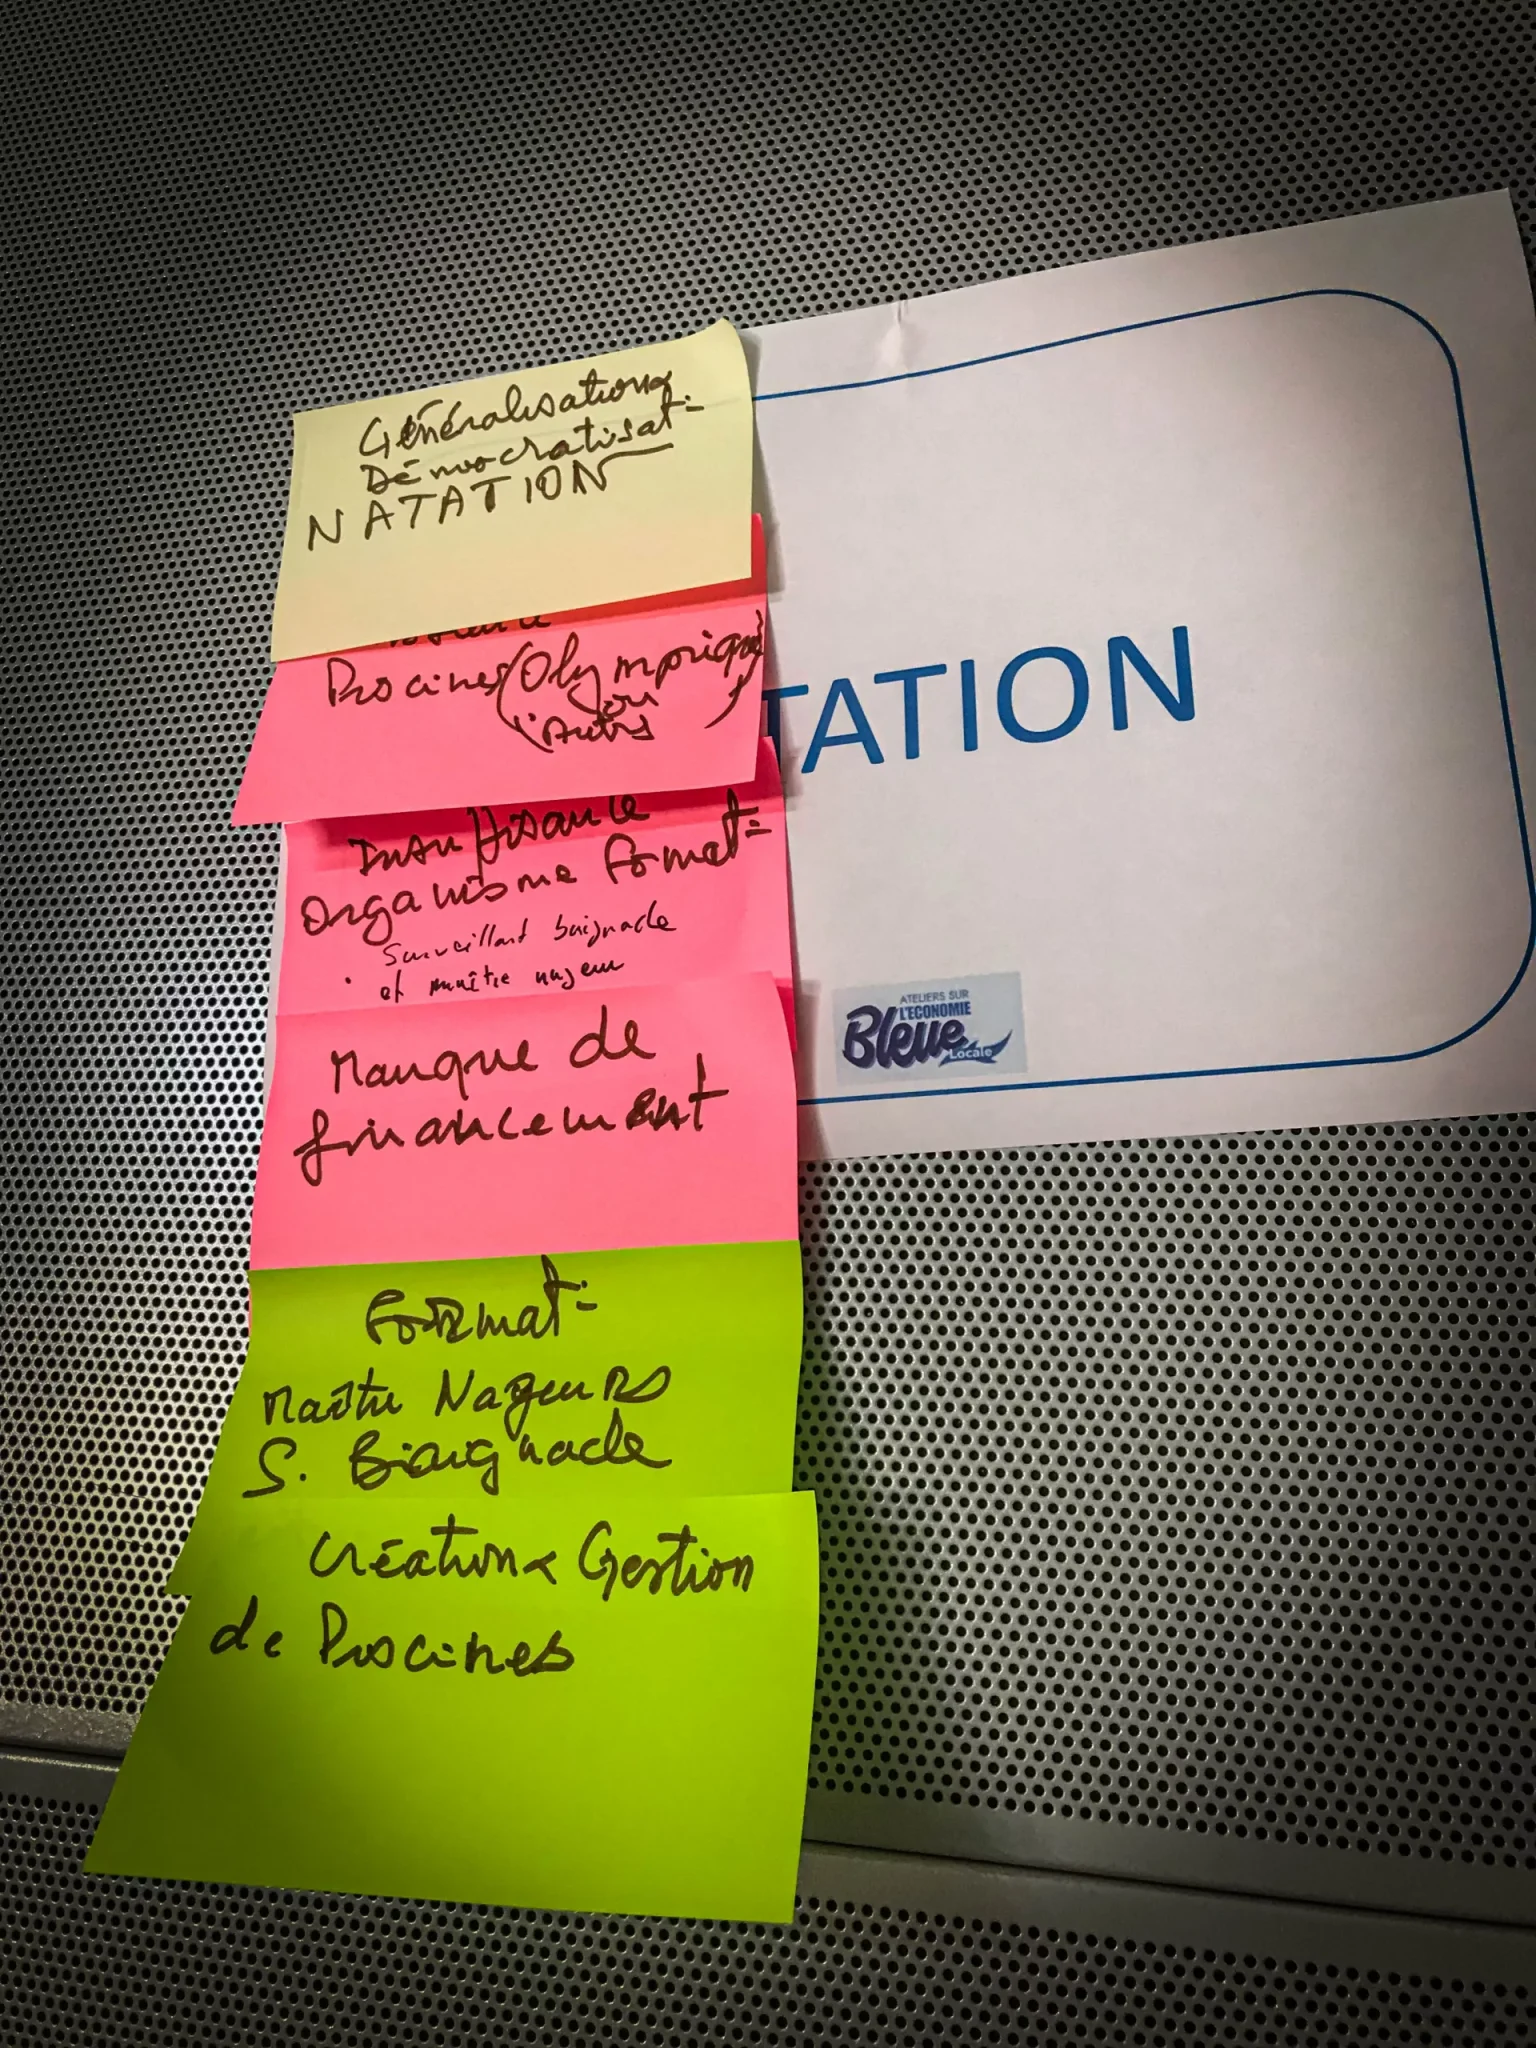 Généralisation &
Démocratisat=
NATATION
Piscines (Olympique
ou
Autres)
Insuffisance
Organisme format=
. Surveillant baignade
et maître nageur
Manque de
financement
Format=
Maître Nageurs
S. Baignade
Création & Gestion
de Piscines
TATION
ATELIERS SUR
L'ECONOMIE
Bleue
Locale